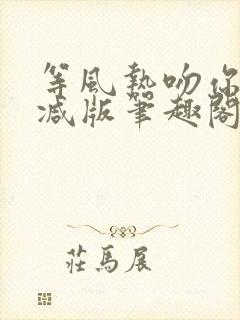 等風熱吻你
减版筆趣閣
莊馬展